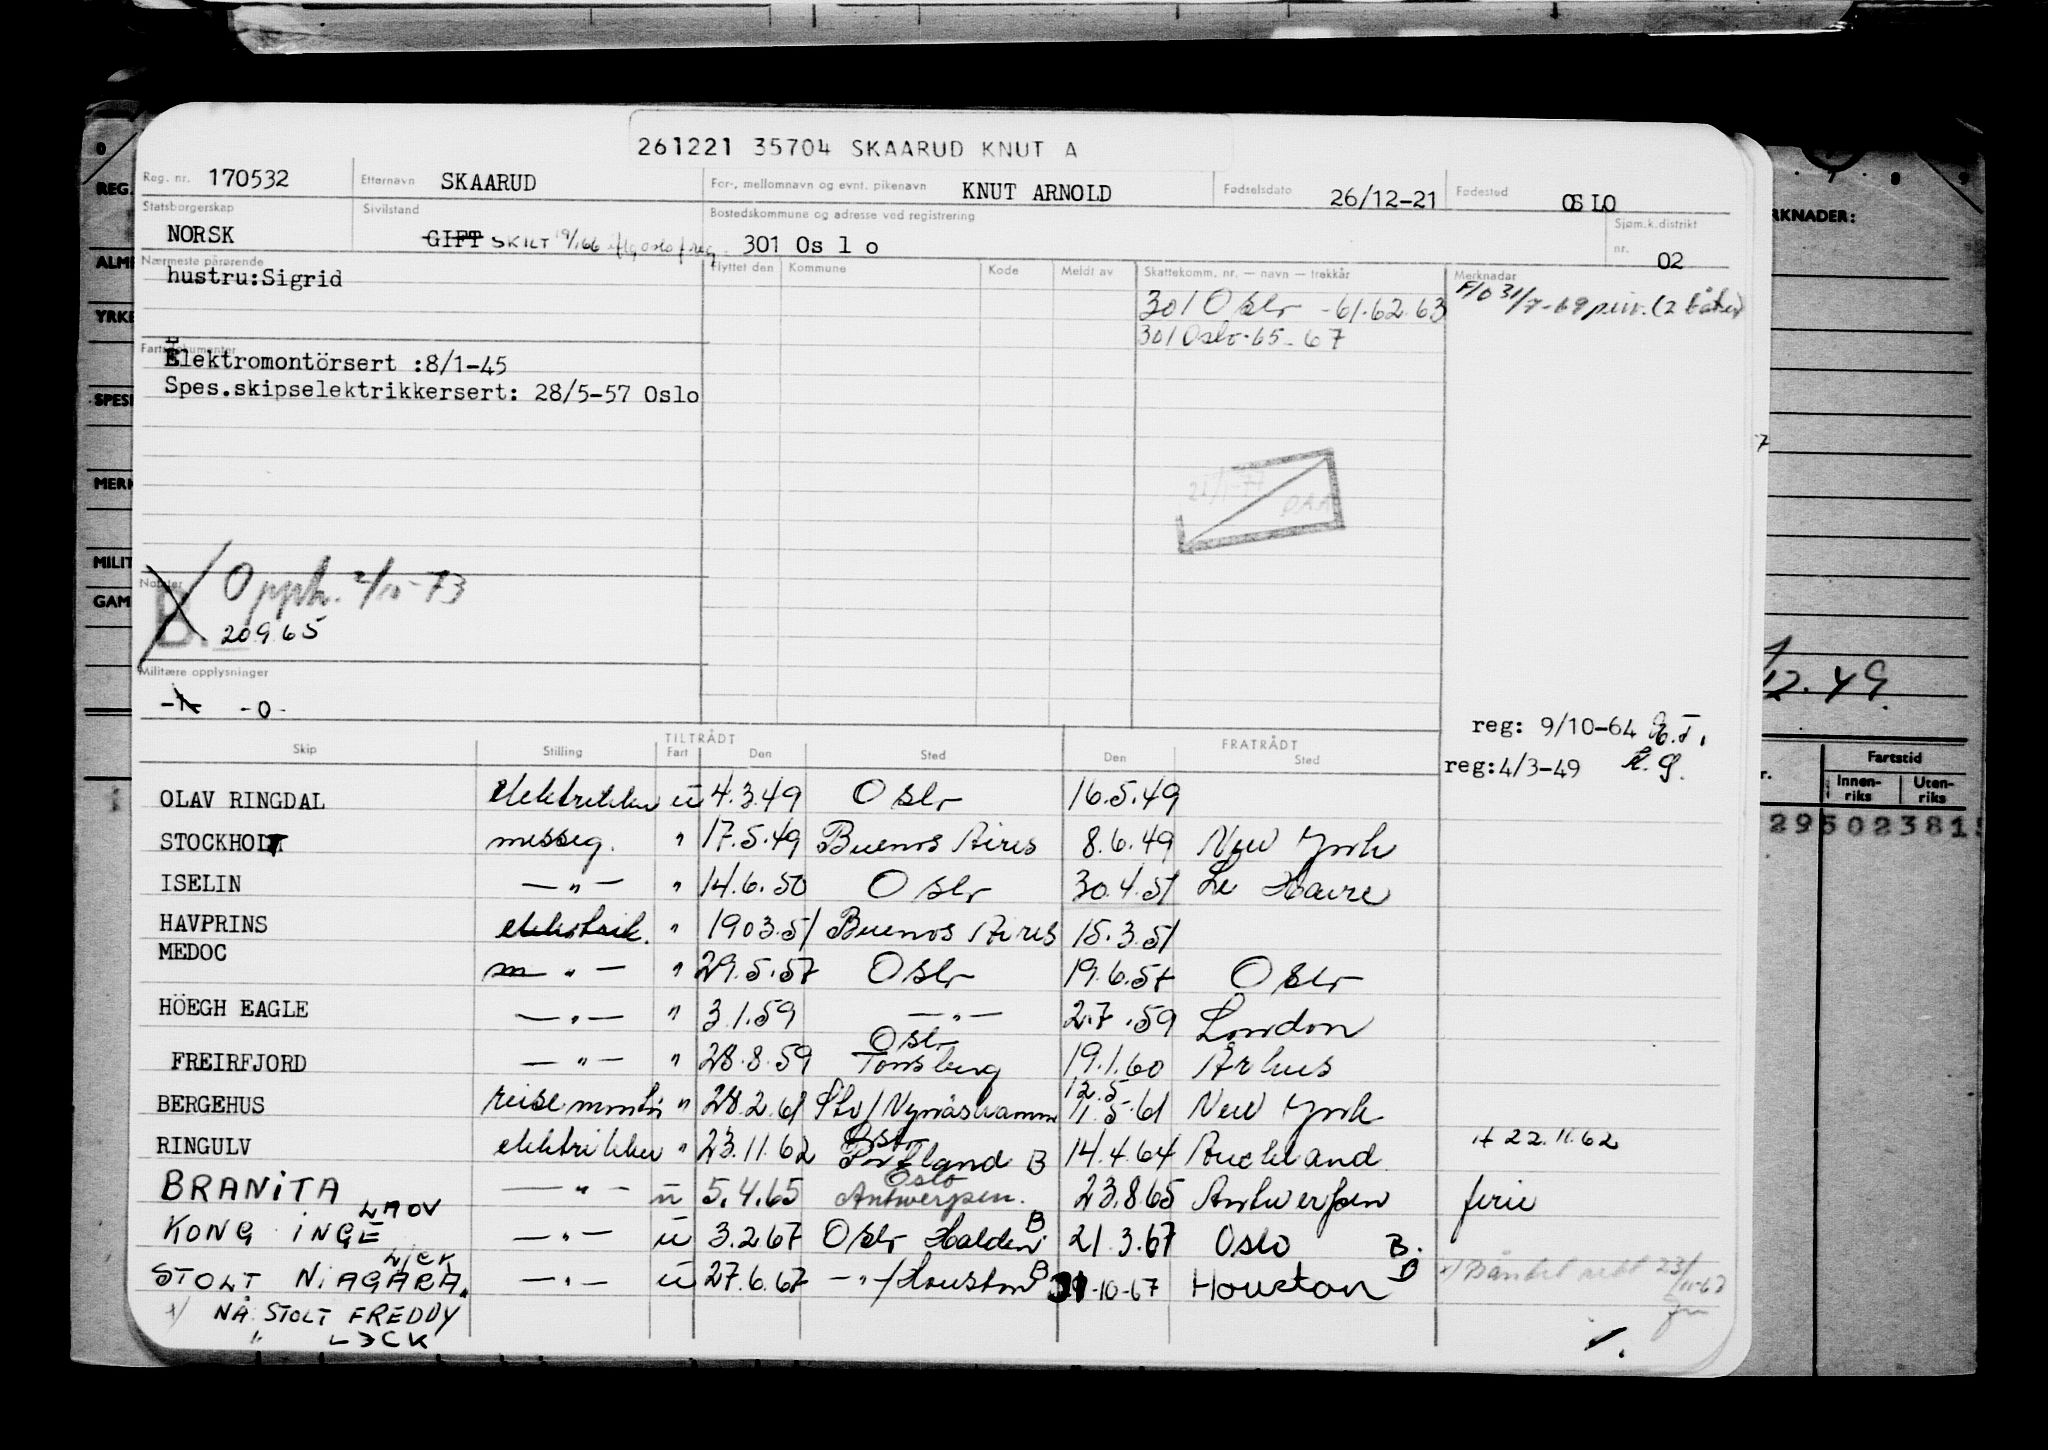 261221 35704 SKAARUD KNUT A
Reg. nr. 170532 Etternavn SKAARUD For-, mellomnavn og evnt. pikenavn KNUT ARNOLD Fødselsdato 26/12-21 Fødested OSLO
Statsborgerskap NORSK Sivilstand GIFT SKILT Bostedskommune og adresse ved registrering 301 Os l o Sjøm.k.distrikt nr. 02
Nærmeste pårørende Flyttet den Kommune Kode Meldt av Skattekomm. nr. — navn — trekkår Merknader
hustru:Sigrid
301 Oslo -61.62.63
301 Oslo-65-67
F/O 31/7-69 (2 båter)
Fartsdokumenter
Elektromontörsert :8/1-45
Spes.skipselektrikkersert: 28/5-57 Oslo
Notater
B. Opph. 2/10-73
20.9.65
Militære opplysninger
-1- -0-
reg: 9/10-64
reg:4/3-49
TILTRÅDT FRATRÅDT
Skip Stilling Fart Den Sted Den Sted
OLAV RINGDAL elektrikker u 4.3.49 Oslo 16.5.49
STOCKHOLM messeg. " 17.5.49 Buenos Aires 8.6.49 New York
ISELIN — " — " 14.6.50 Oslo 30.4.51 Le Havre
HAVPRINS elektrik. " 1903.51 Buenos Aires 15.3.51
MEDOC — " — " 29.5.57 Oslo 19.6.57 Oslo
HÖEGH EAGLE — " — " 3.1.59 — " — 2.7.59 London
FREIRFJORD — " — " 28.8.59 Oslo Tønsberg 19.1.60 Århus
BERGEHUS reisemontør " 28.2.61 Sto/Nynäshamn 12.5 11.5.61 New York
RINGULV elektrikker " 23.11.62 Oslo Portland B 14.4.64 Auckland 22.11.62
BRANITA — " — u 5.4.65 Oslo Antwerpen. 23.8.65 Antwerpen ferie
KONG INGE LAOV — " — u 3.2.67 Oslo Halden B 21.3.67 Oslo B.
STOLT NIAGARA. — " — u 27.6.67 — " —/Houston B -10-67 Houston B
x/ NÅ: STOLT FREDDY
" L3CK
REG.
ALM
YRKE
SPES
MERK
MILIT
GAM
RKNADER:
7 8 9
12.49.
Fartstid
Innen-riks Uten-riks
295023815